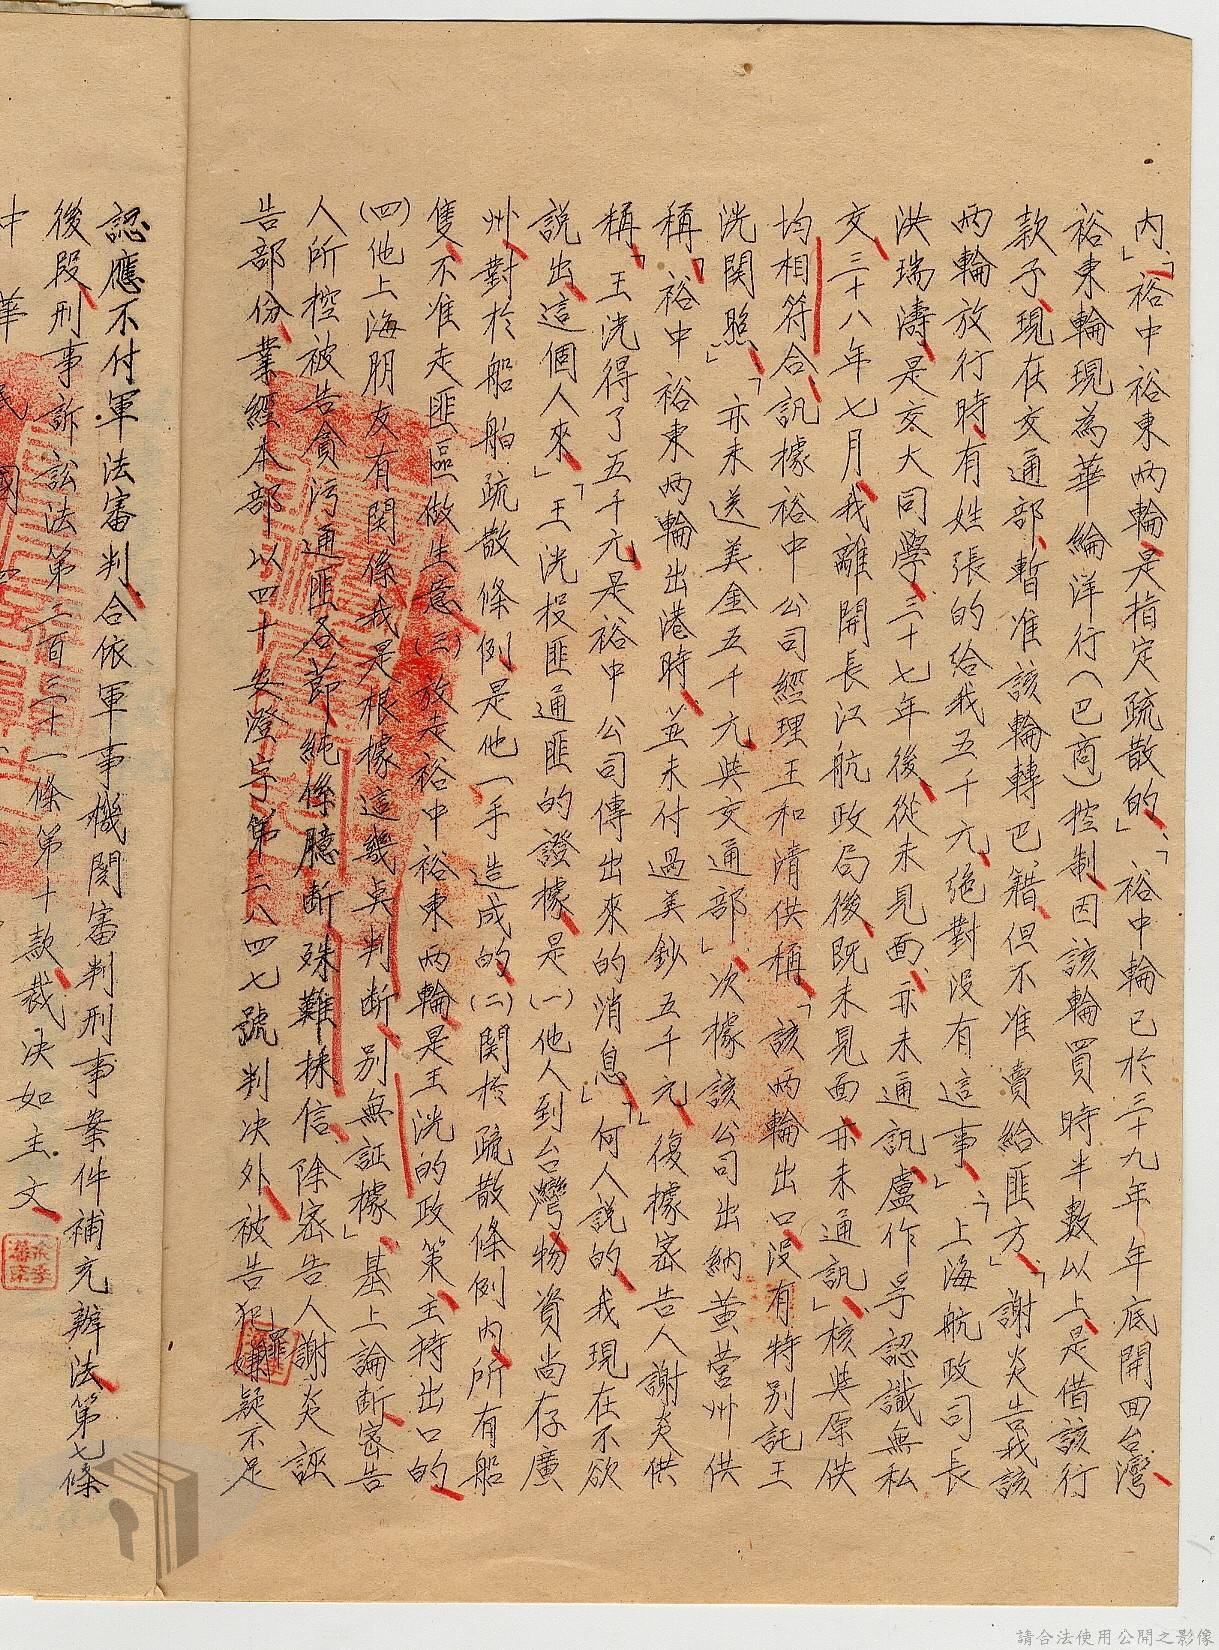 內」、「裕中裕東兩輪是指定疏散的」、「裕中輪已於三十九年年底開回台灣
裕東輪現為華綸洋行(巴商)控制、因該輪買時半數以上是借該行
款子、現在交通部、暫准該輪轉巴籍、但不准賣給匪方」、「謝炎告我該
兩輪放行時、有姓張的給我五千元、絕對沒有這事」、「上海航政司長
洪瑞濤、是交大同學、三十七年後、從未見面、亦未通訊、盧作孚認識無私
交、三十八年七月、我離開長江航政局後、既未見面、亦未通訊」、核與原供
均相符合、訊據裕中公司經理王和清供稱、「該兩輪出口、沒有特別託王
洸関照」、「亦未送美金五千元、與交通部」、次據該公司出納黃營州供
稱、「裕中裕東兩輪出港時、並未付過美鈔五千元」、復據密告人謝炎供
稱、「王洸得了五千元、是裕中公司傳出來的消息」、「何人説的、我現在不欲
説出、這個人來」、「王洸投匪通匪的證據、是(一)他人到台灣、物資尚存廣
州、對於船舶疏散條例、是他一手造成的、(二)関於疏散條例內、所有船
隻、不准走匪區做生意、(三)放走裕中裕東兩輪、是王洸的政策、主持出口的、
(四)他上海朋友有関係我是根據這幾奌判断、別無証據」、基上論断、密告
人所控被告貪污通匪各節、純係臆断、殊難採信、除密告人謝炎誣
告部份、業經本部以四十安澄字第二八四七號判决外、被告犯罪嫌疑不足
認應不付軍法審判、合依軍事機関審判刑事案件補充辦法、第七條
後段、刑事訴訟法第二百三十一條第十款、裁决如主文、
中華民國
請合法使用公開之影像